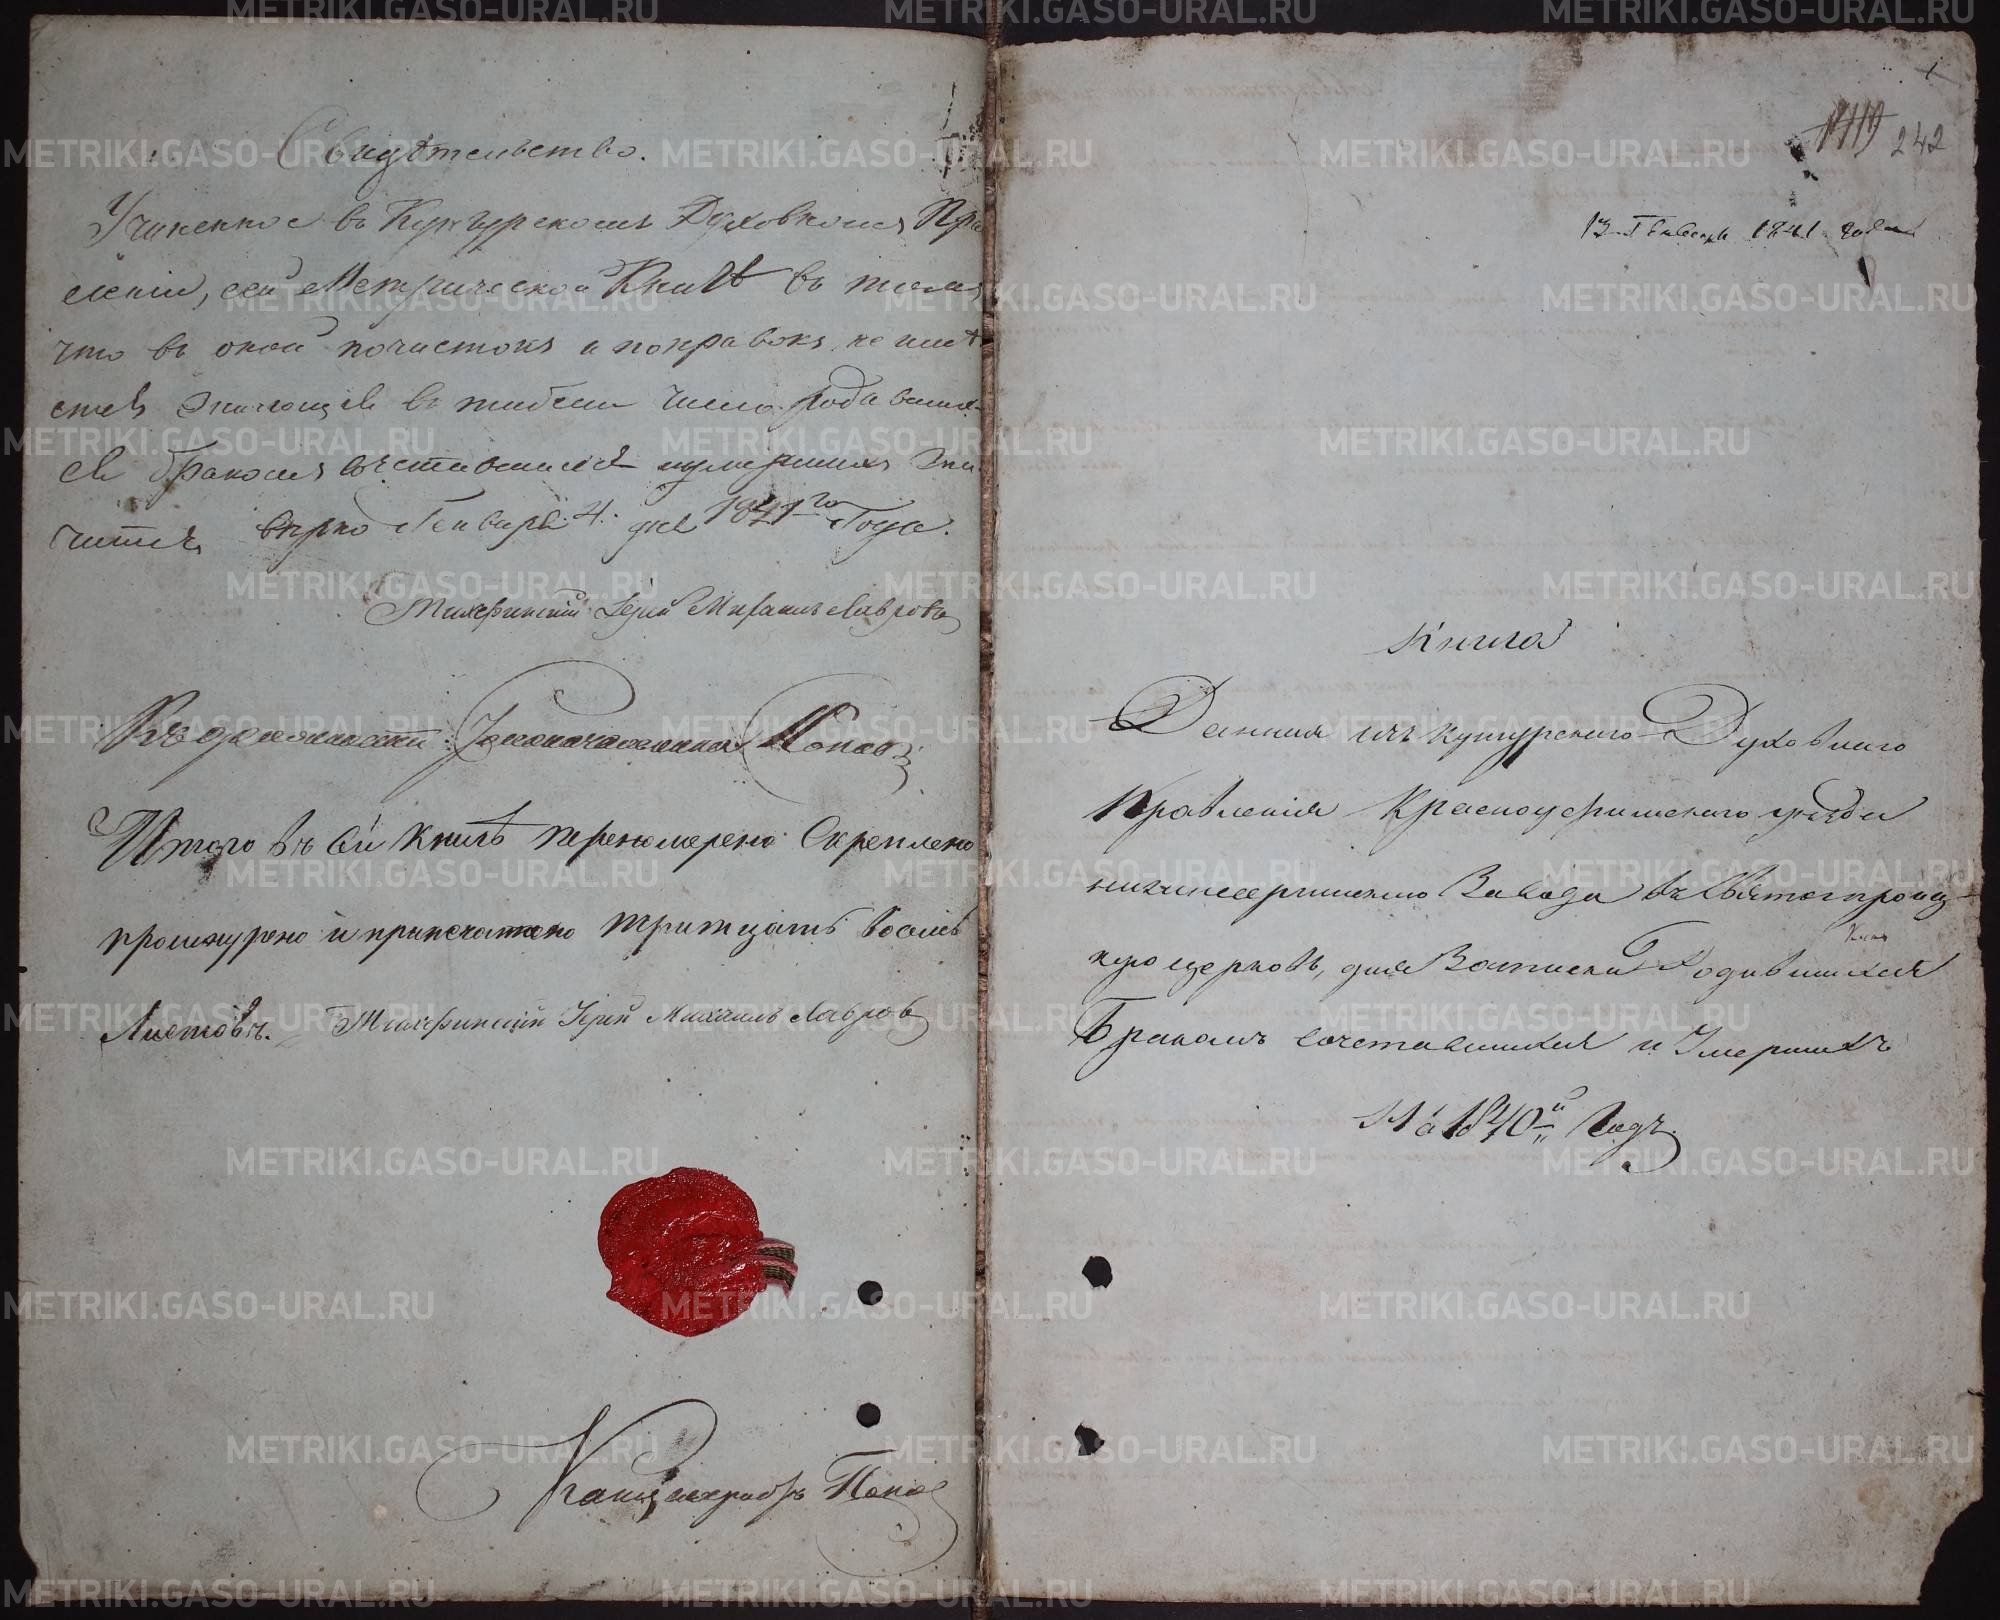 Свидѣтельство.
Учиненное въ Кунгурскомъ Духовномъ Пра
вленіи, сей Метрической Книгѣ въ томъ,
что въ оной почистокъ и поправокъ не имѣ
ется значющся въ табели число родивших
ся бракомъ сочетавшихся и умершихъ зна
чится вѣрно Генваря 4. дня 1841го Года.
Іерей Михаилъ Лавровъ
Въ должности Попов
Итого въ сей книгѣ перенумерено Скреплено
прошнурено и припечатано тритцать восмь
Листовъ. Іерей Михаилъ Лавровъ
Канцеляристъ Попов
1
242
13 Генваря 1841 года
Книга
Данная изъ Кунгурскаго Духовнаго
Правленія Красноуфимскаго уѣзда
нижнесергинскаго Завода въ Святотроиц
кую церковь, для Записки Родившихся
Бракомъ сочетавшихся и Умершихъ
На 1840й Годъ.
METRIKI.GASO-URAL.RU